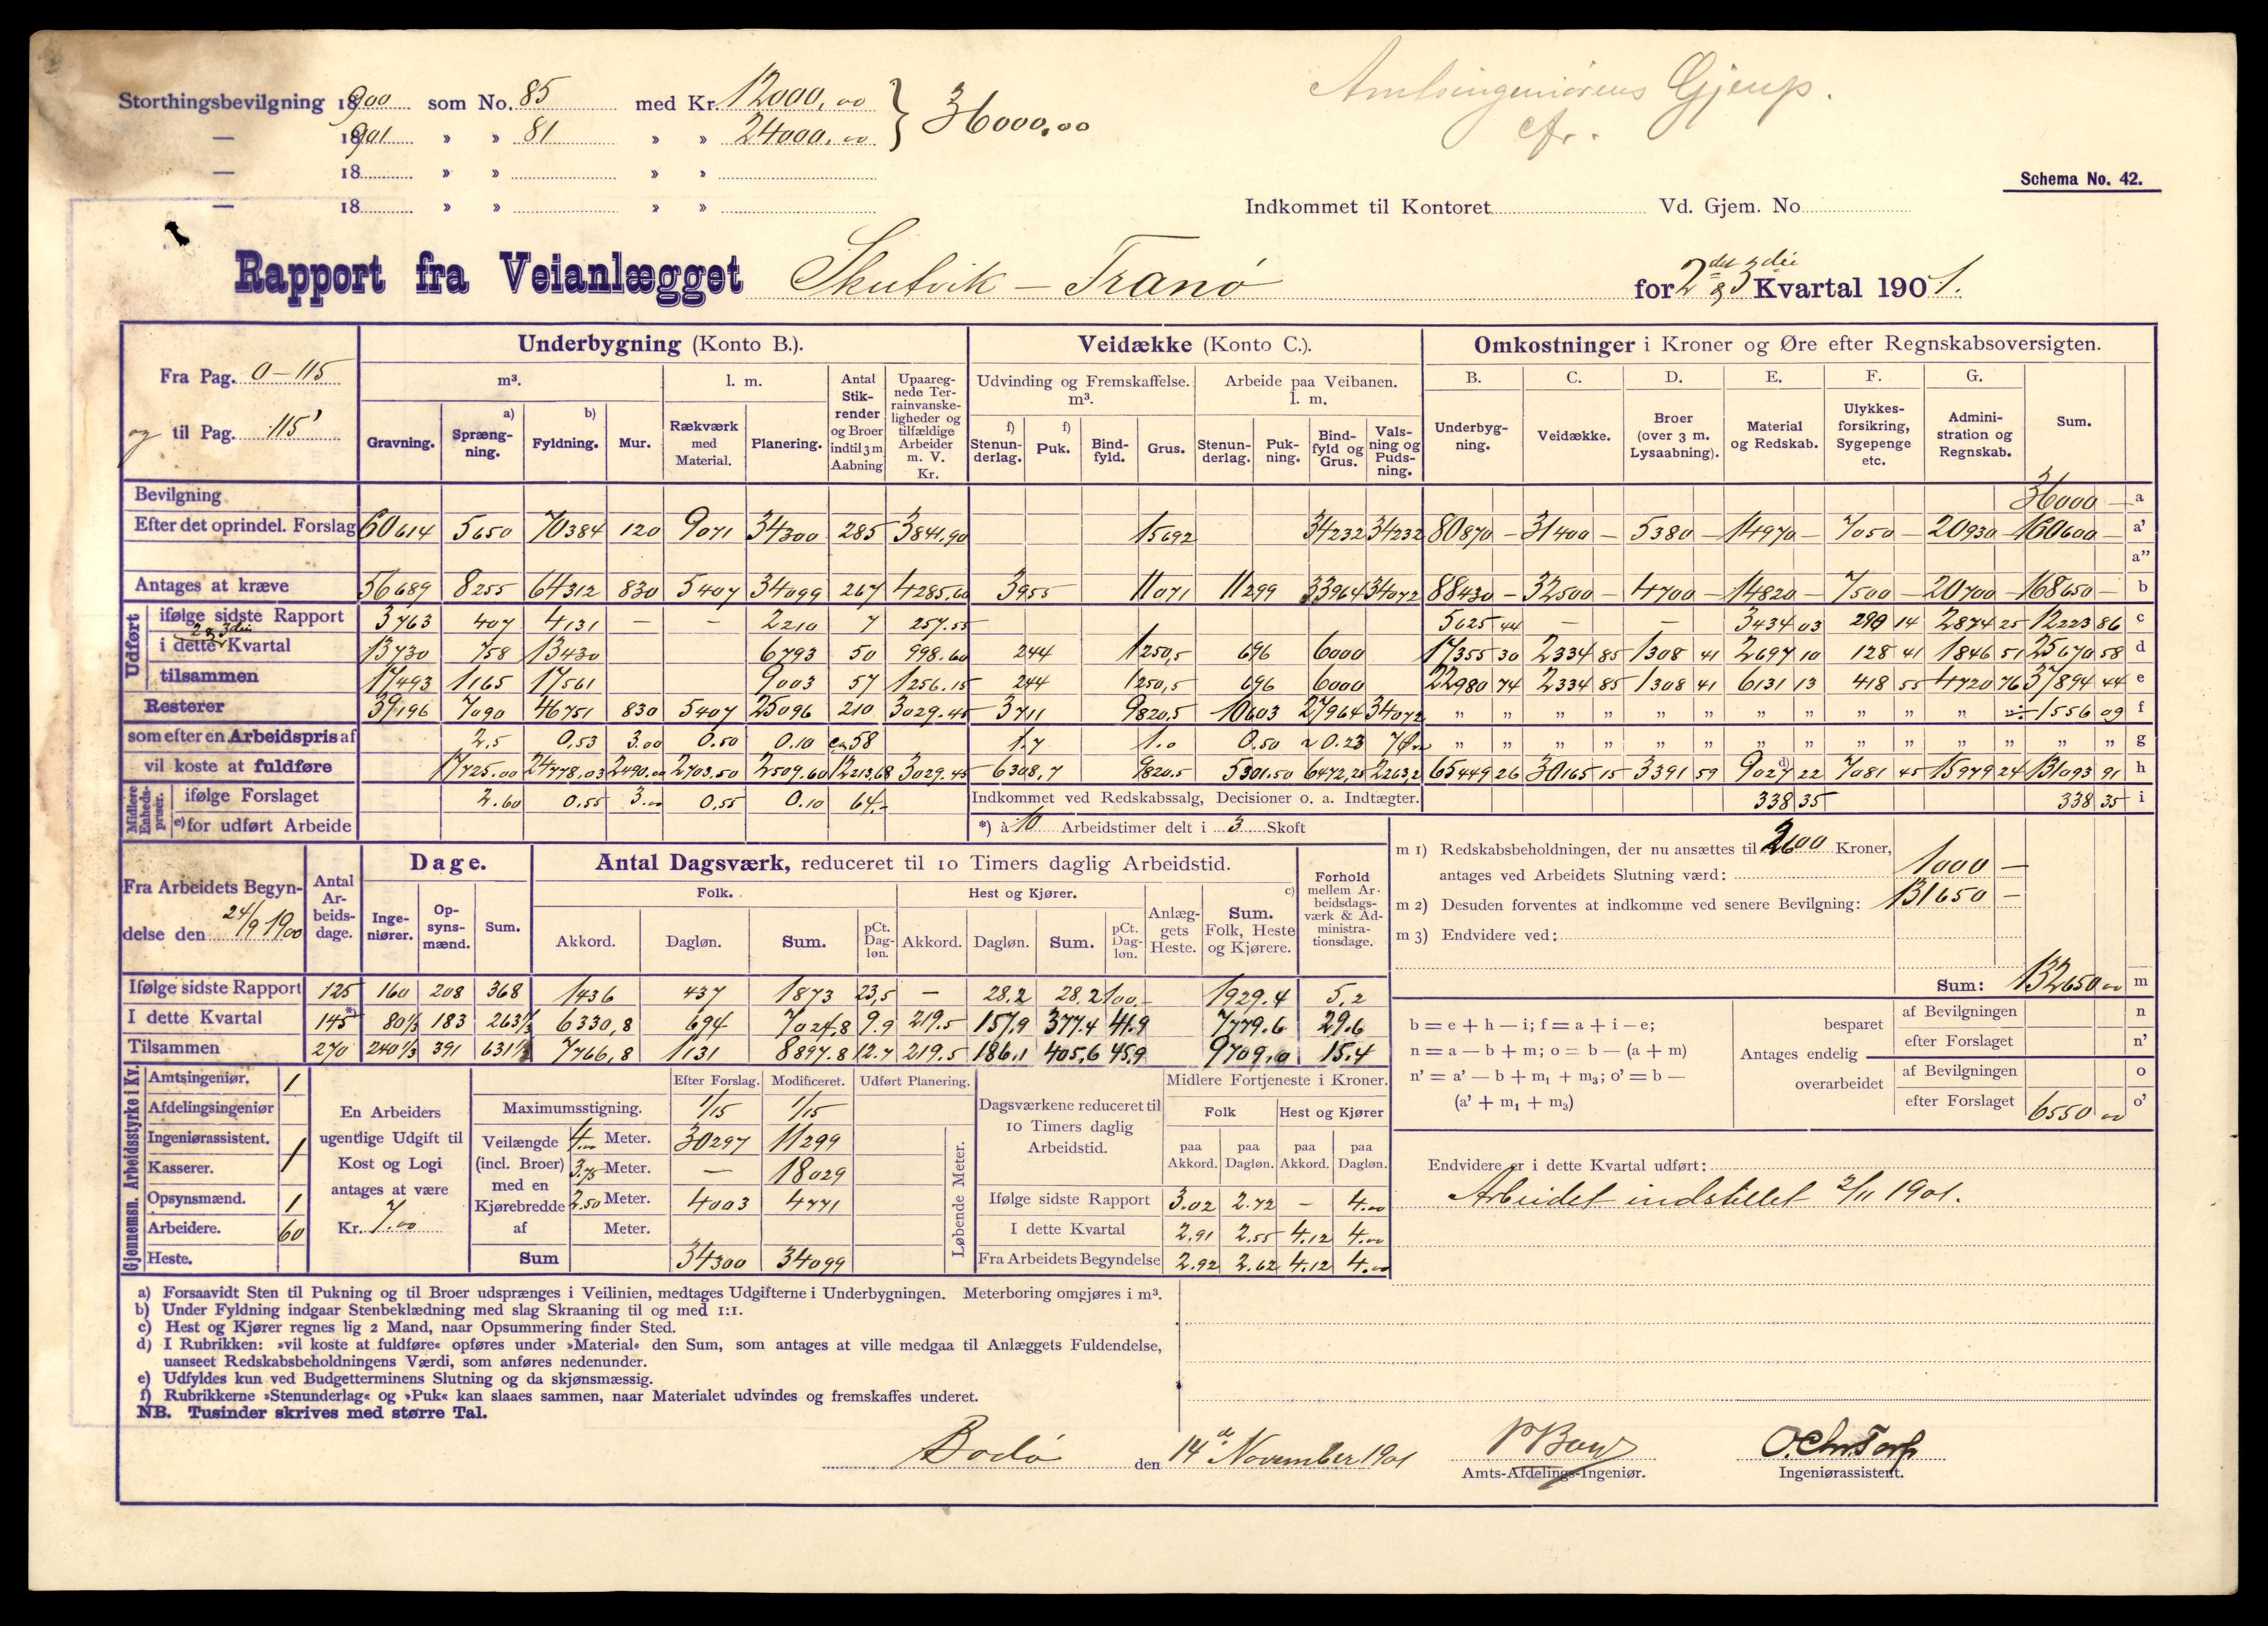 Storthingsbevilgning 1900 som No. 85 med Kr. 12000,00 } 36000,00
— 1901 » » 81 » » 24000,00
— 18 » » » »
— 18 » » » »
Amtsingeniørens Gjenp.
cfr.
Schema No. 42.
Indkommet til Kontoret Vd. Gjem. No
Rapport fra Veianlægget Skutvik – Tranø for 2det & 3die Kvartal 1901.
Fra Pag. 0–115
og til Pag. 115'
Underbygning (Konto B.). Veidække (Konto C.). Omkostninger i Kroner og Øre efter Regnskabsoversigten.
m³. l. m. Antal Stikrender og Broer indtil 3 m Aabning Upaaregnede Terrainvanskeligheder og tilfældige Arbeider m. V. Kr. Udvinding og Fremskaffelse. m³. Arbeide paa Veibanen. l. m. B. C. D. E. F. G. Sum.
Gravning. a) Sprængning. b) Fyldning. Mur. Rækværk med Material. Planering. f) Stenunderlag. f) Puk. Bindfyld. Grus. Stenunderlag. Pukning. Bindfyld og Grus. Valsning og Pudsning. Underbygning. Veidække. Broer (over 3 m. Lysaabning). Material og Redskab. Ulykkesforsikring, Sygepenge etc. Administration og Regnskab.
Bevilgning 36000 — a
Efter det oprindel. Forslag 60614 5650 70384 120 9071 34300 285 3841.90 15692 34232 34232 80870 — 31400 — 5380 — 14970 — 7050 — 20930 — 160600 — a'
a"
Antages at kræve 56689 8255 64312 830 5407 34099 267 4285.60 3955 11071 11299 33964 34072 88430 — 32500 — 4700 — 14820 — 7500 — 20700 — 168650 — b
Udført ifølge sidste Rapport 3763 407 4131 — — 2210 7 257.55 5625 44 — — 3434 03 290 14 2874 25 12223 86 c
i dette 2 & 3die Kvartal 13730 758 13430 6793 50 998.60 244 1250,5 696 6000 17355 30 2334 85 1308 41 2697 10 128 41 1846 51 25670 58 d
tilsammen 17493 1165 17561 9003 57 1256.15 244 1250,5 696 6000 22980 74 2334 85 1308 41 6131 13 418 55 4720 76 37894 44 e
Resterer 39196 7090 46751 830 5407 25096 210 3029.45 3711 9820,5 10603 27964 34072 " " " " " " " " " " " " ÷ 1556 09 f
som efter en Arbeidspris af 2.5 0,53 3.00 0.50 0.10 ca 58 1.7 1.0 0.50 ~ 0.23 7 Øre " " " " " " " " " " " " " " g
vil koste at fuldføre 17725.00 24778.03 2490.00 2703.50 2509.60 12213,68 3029.45 6308,7 9820.5 5301.50 6472,25 2263,2 65449 26 30165 15 3391 59 d) 9027 22 7081 45 15979 24 131093 91 h
Midlere Enhedspriser. ifølge Forslaget 2.60 0.55 3.00 0,55 0.10 64.- Indkommet ved Redskabssalg, Decisioner o. a. Indtægter. 338 35 338 35 i
e) for udført Arbeide *) à 10 Arbeidstimer delt i 3 Skoft
Fra Arbeidets Begyndelse den 24/9 1900
Antal Arbeidsdage. Dage. Antal Dagsværk, reduceret til 10 Timers daglig Arbeidstid. Forhold mellem Arbeidsdagsværk & Administrationsdage.
Ingeniører. Opsynsmænd. Sum. Folk. Hest og Kjører. Anlæggets Heste. c) Sum. Folk, Heste og Kjørere.
Akkord. Dagløn. Sum. pCt. Dagløn. Akkord. Dagløn. Sum. pCt. Dagløn.
Ifølge sidste Rapport 125 160 208 368 1436 437 1873 23,5 — 28.2 28.2 100.- 1929.4 5.2
I dette Kvartal 145*) 80⅓ 183 263⅓ 6330,8 694 7024.8 9.9 219.5 157.9 377.4 41.9 7779.6 29.6
Tilsammen 270 240⅓ 391 631⅓ 7766,8 1131 8897.8 12.7 219.5 186.1 405,6 45.9 9709.0 15.4
m 1) Redskabsbeholdningen, der nu ansættes til 2600 Kroner,
antages ved Arbeidets Slutning værd: 1000 —
m 2) Desuden forventes at indkomme ved senere Bevilgning: 131650 —
m 3) Endvidere ved:
Sum: 132650 00 m
b = e + h — i; f = a + i — e;
n = a — b + m; o = b — (a + m)
n' = a' — b + m₁ + m₃; o' = b —
(a' + m₁ + m₃)
Antages endelig besparet af Bevilgningen n
efter Forslaget n'
overarbeidet af Bevilgningen o
efter Forslaget 6550 00 o'
Gjennemsn. Arbeidsstyrke i Kv.
Amtsingeniør. 1
Afdelingsingeniør
Ingeniørassistent. 1
Kasserer.
Opsynsmænd. 1
Arbeidere. 60
Heste.
En Arbeiders
ugentlige Udgift til
Kost og Logi
antages at være
Kr. 7.00
Efter Forslag. Modificeret. Udført Planering.
Maximumsstigning. 1/15 1/15
Veilængde (incl. Broer) med en Kjørebredde af
4.00 Meter. 30297 11299
3.75 Meter. — 18029
2.50 Meter. 4003 4771
Meter.
Sum 34300 34099
Løbende Meter.
Dagsværkene reduceret til 10 Timers daglig Arbeidstid. Midlere Fortjeneste i Kroner.
Folk Hest og Kjører
paa Akkord. paa Dagløn. paa Akkord. paa Dagløn.
Ifølge sidste Rapport 3.02 2.72 — 4.00
I dette Kvartal 2.91 2.55 4.12 4.00
Fra Arbeidets Begyndelse 2.92 2.62 4.12 4.00
Endvidere er i dette Kvartal udført:
Arbeidet indstillet 2/11 1901.
a) Forsaavidt Sten til Pukning og til Broer udsprænges i Veilinien, medtages Udgifterne i Underbygningen. Meterboring omgjøres i m³.
b) Under Fyldning indgaar Stenbeklædning med slag Skraaning til og med 1:1.
c) Hest og Kjører regnes lig 2 Mand, naar Opsummering finder Sted.
d) I Rubrikken: »vil koste at fuldføre« opføres under »Material« den Sum, som antages at ville medgaa til Anlæggets Fuldendelse,
uanseet Redskabsbeholdningens Værdi, som anføres nedenunder.
e) Udfyldes kun ved Budgetterminens Slutning og da skjønsmæssig.
f) Rubrikkerne »Stenunderlag« og »Puk« kan slaaes sammen, naar Materialet udvindes og fremskaffes underet.
NB. Tusinder skrives med større Tal.
Bodø den 14de November 1901
Amts-Afdelings-Ingeniør.
O. Chr. Torp
Ingeniørassistent.